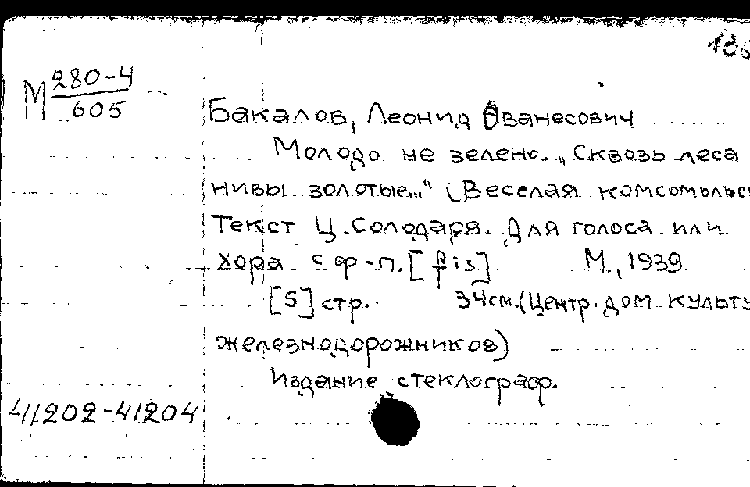 186
М 280-4
605
Бакалов, Леонид Ованесович
Молодо не зелено. „Сквозь леса
нивы золотые..." (Веселая комсомольс
Текст Ц. Солодаря. Для голоса или
хора с ф-п. [fis] М., 1939
[5] стр. 34см. (Центр. дом культу
железнодорожников)
Издание стеклограф.
41202-41204